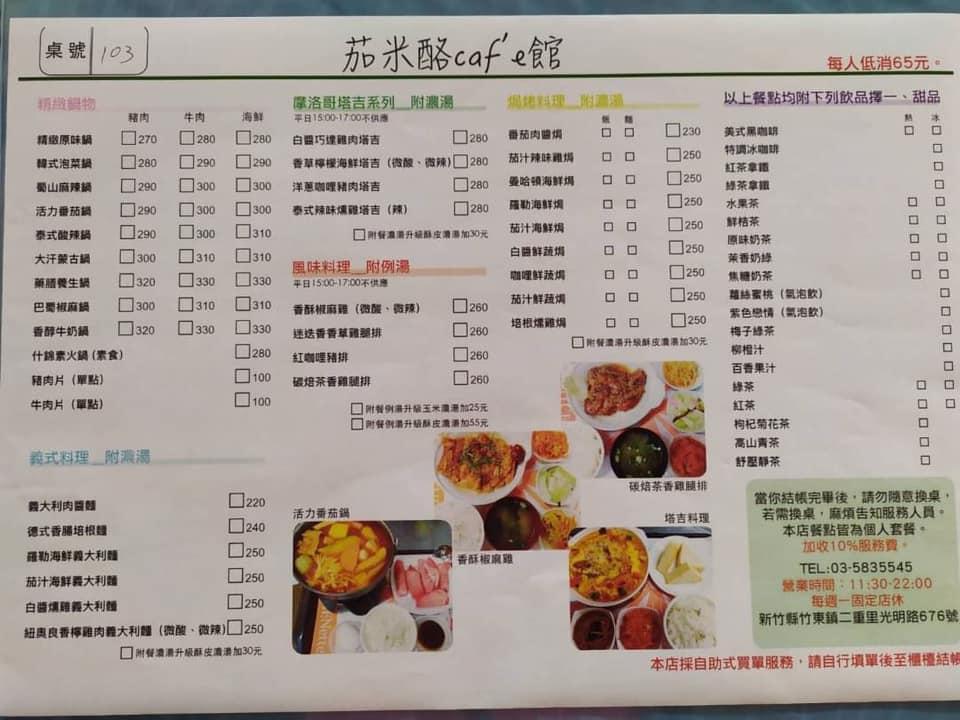 桌號 103
茄米酪caf'e館
每人低消65元。
精緻鍋物
豬肉 牛肉 海鮮
精緻原味鍋 □270 □280 □280
韓式泡菜鍋 □280 □290 □290
蜀山麻辣鍋 □290 □300 □300
活力番茄鍋 □290 □300 □300
泰式酸辣鍋 □290 □300 □310
大汗蒙古鍋 □290 □300 □310
藥膳養生鍋 □320 □330 □330
巴蜀椒麻鍋 □300 □310 □310
香醇牛奶鍋 □320 □330 □330
什錦素火鍋(素食) □280
豬肉片(單點) □100
牛肉片(單點) □100
義式料理__附濃湯
義大利肉醬麵 □220
德式香腸培根麵 □240
羅勒海鮮義大利麵 □250
茄汁海鮮義大利麵 □250
白醬燻雞義大利麵 □250
紐奧良香檸雞肉義大利麵(微酸、微辣) □250
□附餐濃湯升級酥皮濃湯加30元
摩洛哥塔吉系列__附濃湯
平日15:00-17:00不供應
白醬巧達雞肉塔吉 □280
香草檸檬海鮮塔吉(微酸、微辣) □280
洋蔥咖哩豬肉塔吉 □280
泰式辣味燻雞塔吉(辣) □280
□附餐濃湯升級酥皮濃湯加30元
風味料理__附例湯
平日15:00-17:00不供應
香酥椒麻雞(微酸、微辣) □260
迷迭香香草雞腿排 □260
紅咖哩豬排 □260
碳焙茶香雞腿排 □260
□附餐例湯升級玉米濃湯加25元
□附餐例湯升級酥皮濃湯加55元
焗烤料理__附濃湯
飯 麵
番茄肉醬焗 □ □ □230
茄汁辣味雞焗 □ □ □250
曼哈頓海鮮焗 □ □ □250
羅勒海鮮焗 □ □ □250
茄汁海鮮焗 □ □ □250
白醬鮮蔬焗 □ □ □250
咖哩鮮蔬焗 □ □ □250
茄汁鮮蔬焗 □ □ □250
培根燻雞焗 □ □ □250
□附餐濃湯升級酥皮濃湯加30元
活力番茄鍋
香酥椒麻雞
碳焙茶香雞腿排
塔吉料理
以上餐點均附下列飲品擇一、甜品
熱 冰
美式黑咖啡 □ □
特調冰咖啡 □
紅茶拿鐵 □
綠茶拿鐵 □
水果茶 □ □
鮮桔茶 □ □
原味奶茶 □ □
茉香奶綠 □ □
焦糖奶茶 □ □
蘿絲蜜桃(氣泡飲) □
紫色戀情(氣泡飲) □
梅子綠茶 □
柳橙汁 □
百香果汁 □
綠茶 □ □
紅茶 □ □
枸杞菊花茶 □
高山青茶 □
舒壓靜茶 □
當你結帳完畢後,請勿隨意換桌,
若需換桌,麻煩告知服務人員。
本店餐點皆為個人套餐。
加收10%服務費。
TEL:03-5835545
營業時間:11:30-22:00
每週一固定店休
新竹縣竹東鎮二重里光明路676號
本店採自助式買單服務,請自行填單後至櫃檯結帳